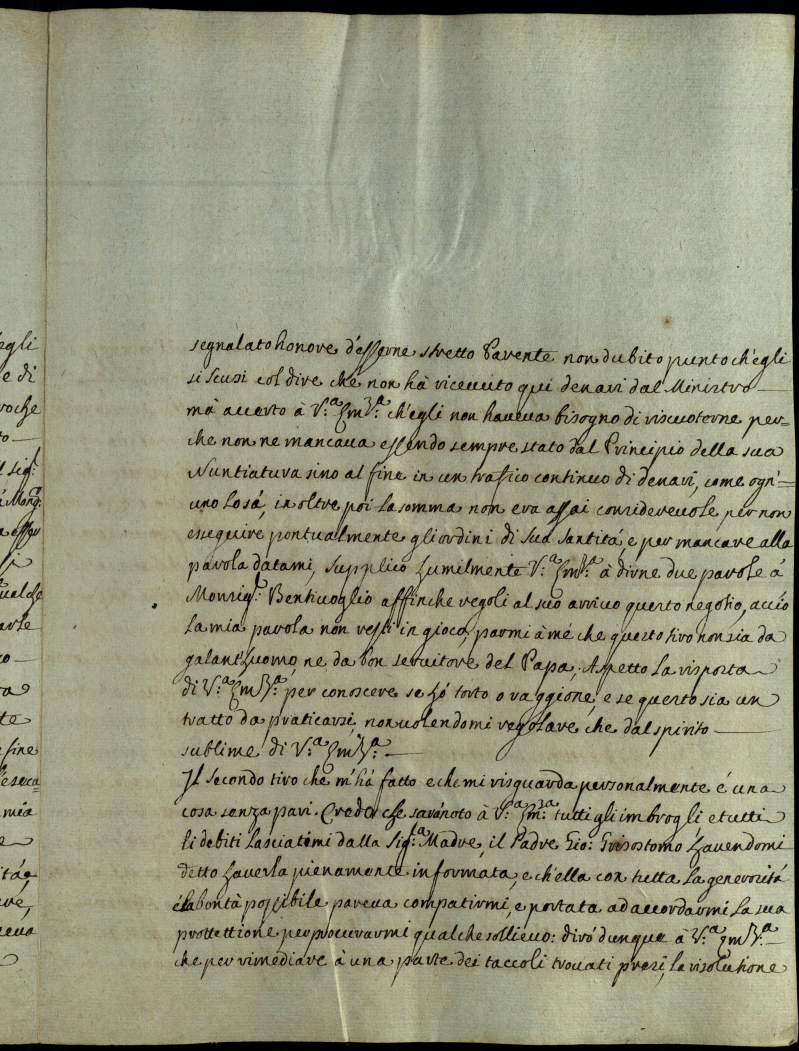 segnalato honore d'esserne stretto Parente non dubito punto ch'egli
si scusi col dire che non hà riceuuto qui denari dal Ministro
mà accerto à V.ª Em.ᶻᵃ ch'egli non haueua bisogno di riscuoterne per=
che non ne mancaua essendo sempre stato dal Principio della sua
Nuntiatura sino al fine in un trafico continuo di denari, come ogn'=
uno lo sá, in oltre poi la somma non era assai considereuole per non
esseguire pontualmente gli ordini di Sua Santitá, e per mancare alla
parola datami, supplico humilmente V.ª Em.ᶻᵃ à dirne due parole á
Monsig.ʳ Bentiuoglio affinche regoli al suo arriuo questo negotio, acció
la mia parola non resti in gioco, parmi à mé che questo tiro non sia da
galant'huomo, ne da bon seruitore del Papa; Aspetto la risposta
di V.ª Em.ᶻᵃ per conoscere se hó torto o raggione, e se questo sia un
tratto da praticarsi, non uolendomi regolare che dal spirito
sublime di V.ª Em.ᶻᵃ
Il secondo tiro che m'há fatto e che mi risguarda personalmente é una
cosa senza pari. Credo che sará noto à V.ª Em.ᶻᵃ tutti gli imbrogli e tutti
li debiti lasciatimi dalla Sig.ʳᵃ Madre, il Padre Gio: Grisostomo hauendomi
detto hauerla pienamente informata, e ch'ella con tutta la generositá
é la bontà possibile pareua compatirmi, e portata ad accordarmi la sua
prottettione per procurarmi qualche sollieuo: diró dunque à V.ª Em.ᶻᵃ
che per rimediare à una parte dei taccoli trouati presi la risolutione
egli
e di
roche
to
l sig.ʳ
Mong.ʳ
si
ualche
arle
co
ra
te
fine
esecu=
mia
e
itá
ueua